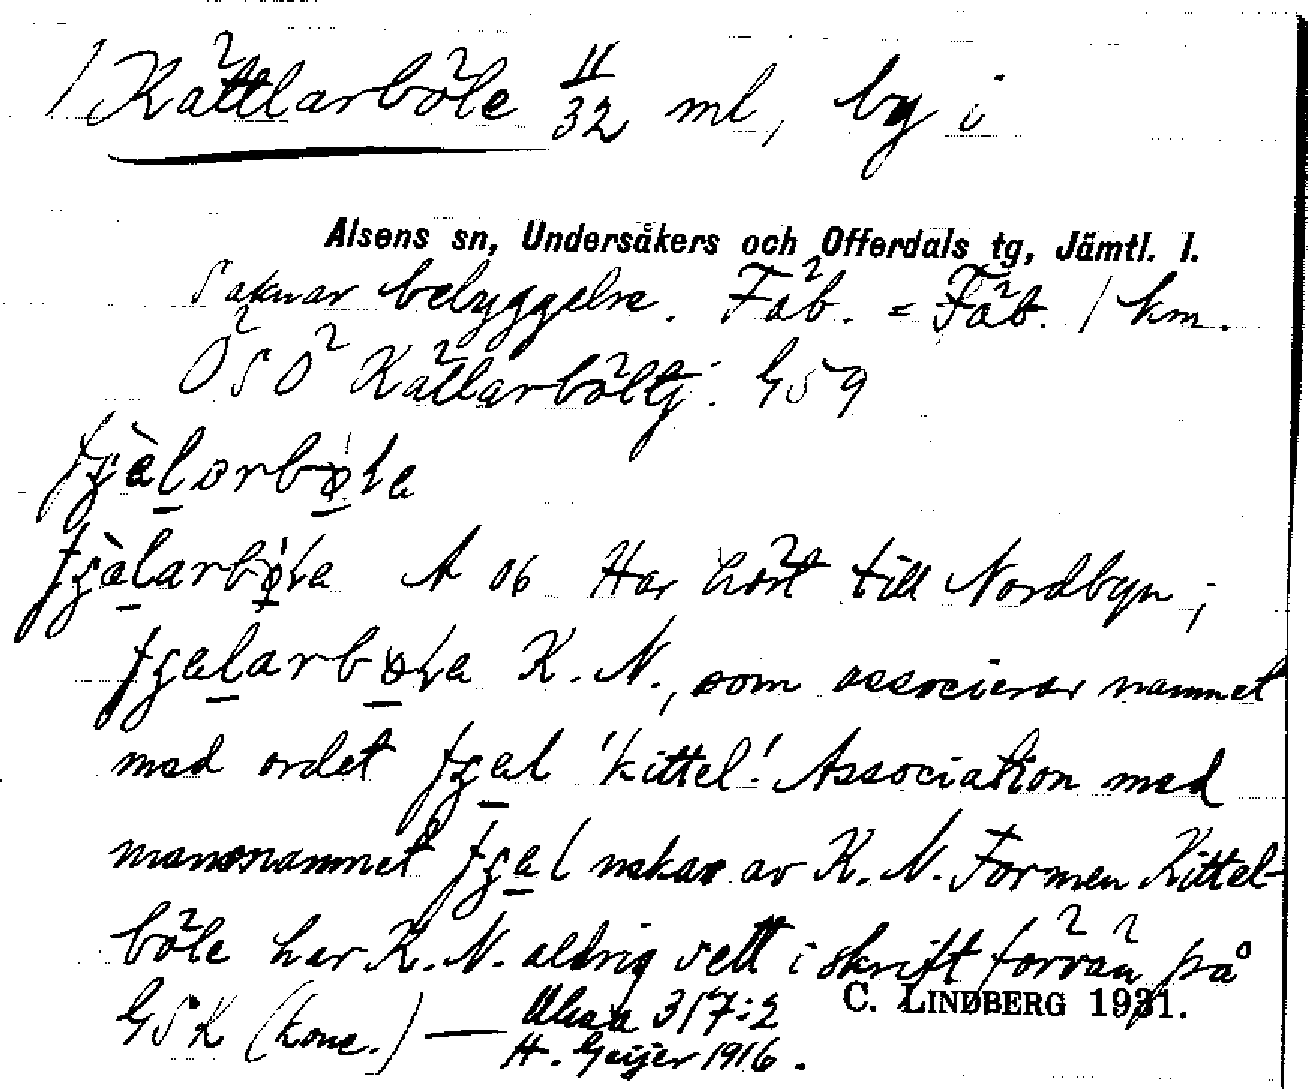 1 Kättlarböle II/32 ml, by i
Alsens sn, Undersåkers och Offerdals tg, Jämtl. l.
Saknar bebyggelse. Fäb. = Fäb. 1 km.
ÖSÖ Källarböltj: G59
fʒàlarbø̱la
fʒàlarbø̱la A 06 Har hört till Nordbyn;
fʒalarbø̱la K. N., som associerar namnet
med ordet fʒal 'kittel'. Association med
mansnamnet fʒal nekas av K. N. Formen Kittel-
böle har K. N. aldrig sett i skrift förrän på
GSK (konc.) — Alsen 317:2
H. Geijer 1916.
C. LINDBERG 1931.